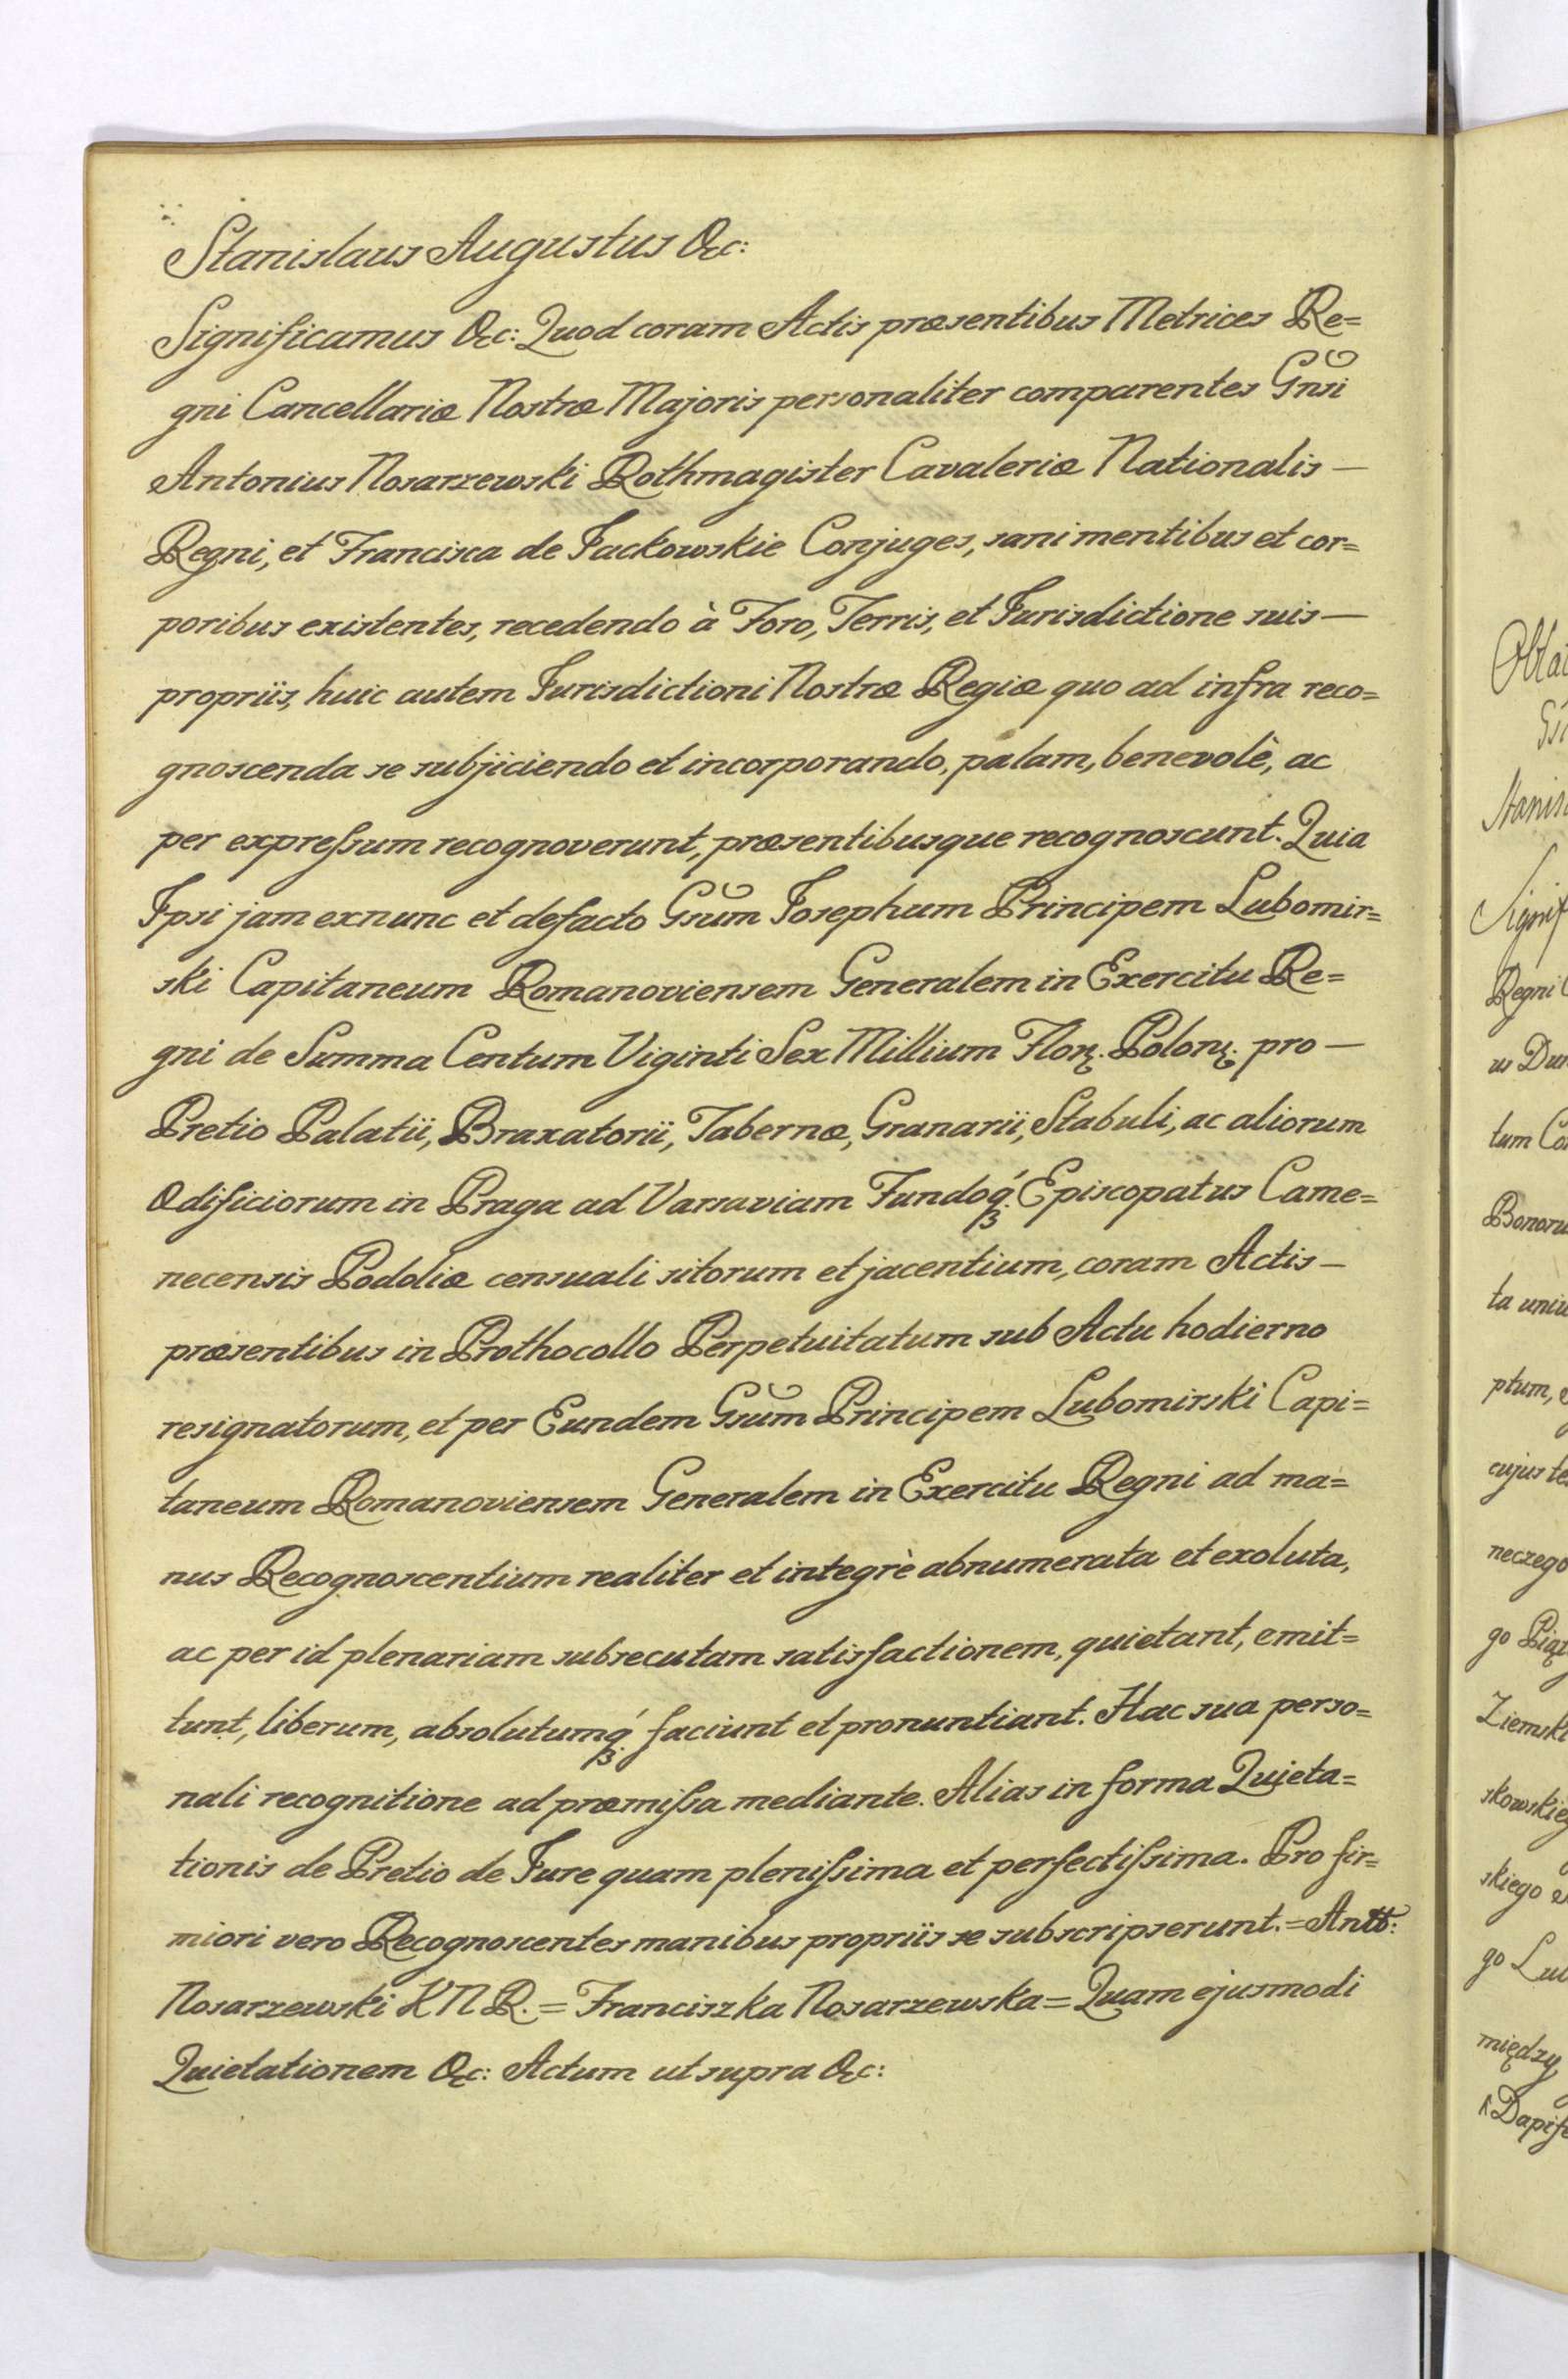 Stanislaus Augustus &c:
Significamus &c: Quod coram Actis præsentibus Metrices Re=
gni Cancellariæ Nostræ Majoris personaliter comparentes Gnsi
Antonius Nosarzewski Rothmagister Cavaleriæ Nationalis —
Regni, et Francisca de Jackowskie Conjuges, sani mentibus et cor=
poribus existentes, recedendo à Foro, Terris, et Jurisdictione suis —
propriis, huic autem Jurisdictioni Nostræ Regiæ quo ad infra reco=
gnoscenda se subjiciendo et incorporando, palam, benevolè, ac
per expreſsum recognoverunt, præsentibusque recognoscunt. Quia
Ipsi jam exnunc et defacto Gsum Josephum Principem Lubomir=
ski Capitaneum Romanoviensem Generalem in Exercitu Re=
gni de Summa Centum Viginti Sex Millium Flor. Polon. pro —
Pretio Palatii, Braxatorii, Tabernæ, Granarii, Stabuli, ac aliorum
Ædificiorum in Praga ad Varsaviam Fundoq́. Episcopatus Came=
necensis Podoliæ censuali sitorum et jacentium, coram Actis —
præsentibus in Prothocollo Perpetuitatum sub Actu hodierno
resignatorum, et per Eundem Gsum Principem Lubomirski Capi=
taneum Romanoviensem Generalem in Exercitu Regni ad ma=
nus Recognoscentium realiter et integrè abnumerata et exoluta,
ac per id plenariam subsecutam satisfactionem, quietant, emit=
tunt, liberum, absolutumq́. faciunt et pronuntiant. Hac sua perso=
nali recognitione ad præmiſsa mediante. Alias in forma Quieta=
tionis de Pretio de Jure quam pleniſsima et perfectiſsima. Pro fir=
miori vero Recognoscentes manibus propriis se subscripserunt. = Antt:
Nosarzewski K N R. = Franciszka Nosarzewska = Quam ejusmodi
Quietationem &c: Actum ut supra &c:
Signif
Regni
tum
ptum,
cujus
neczego
go
Ziemski
skiego
go
między